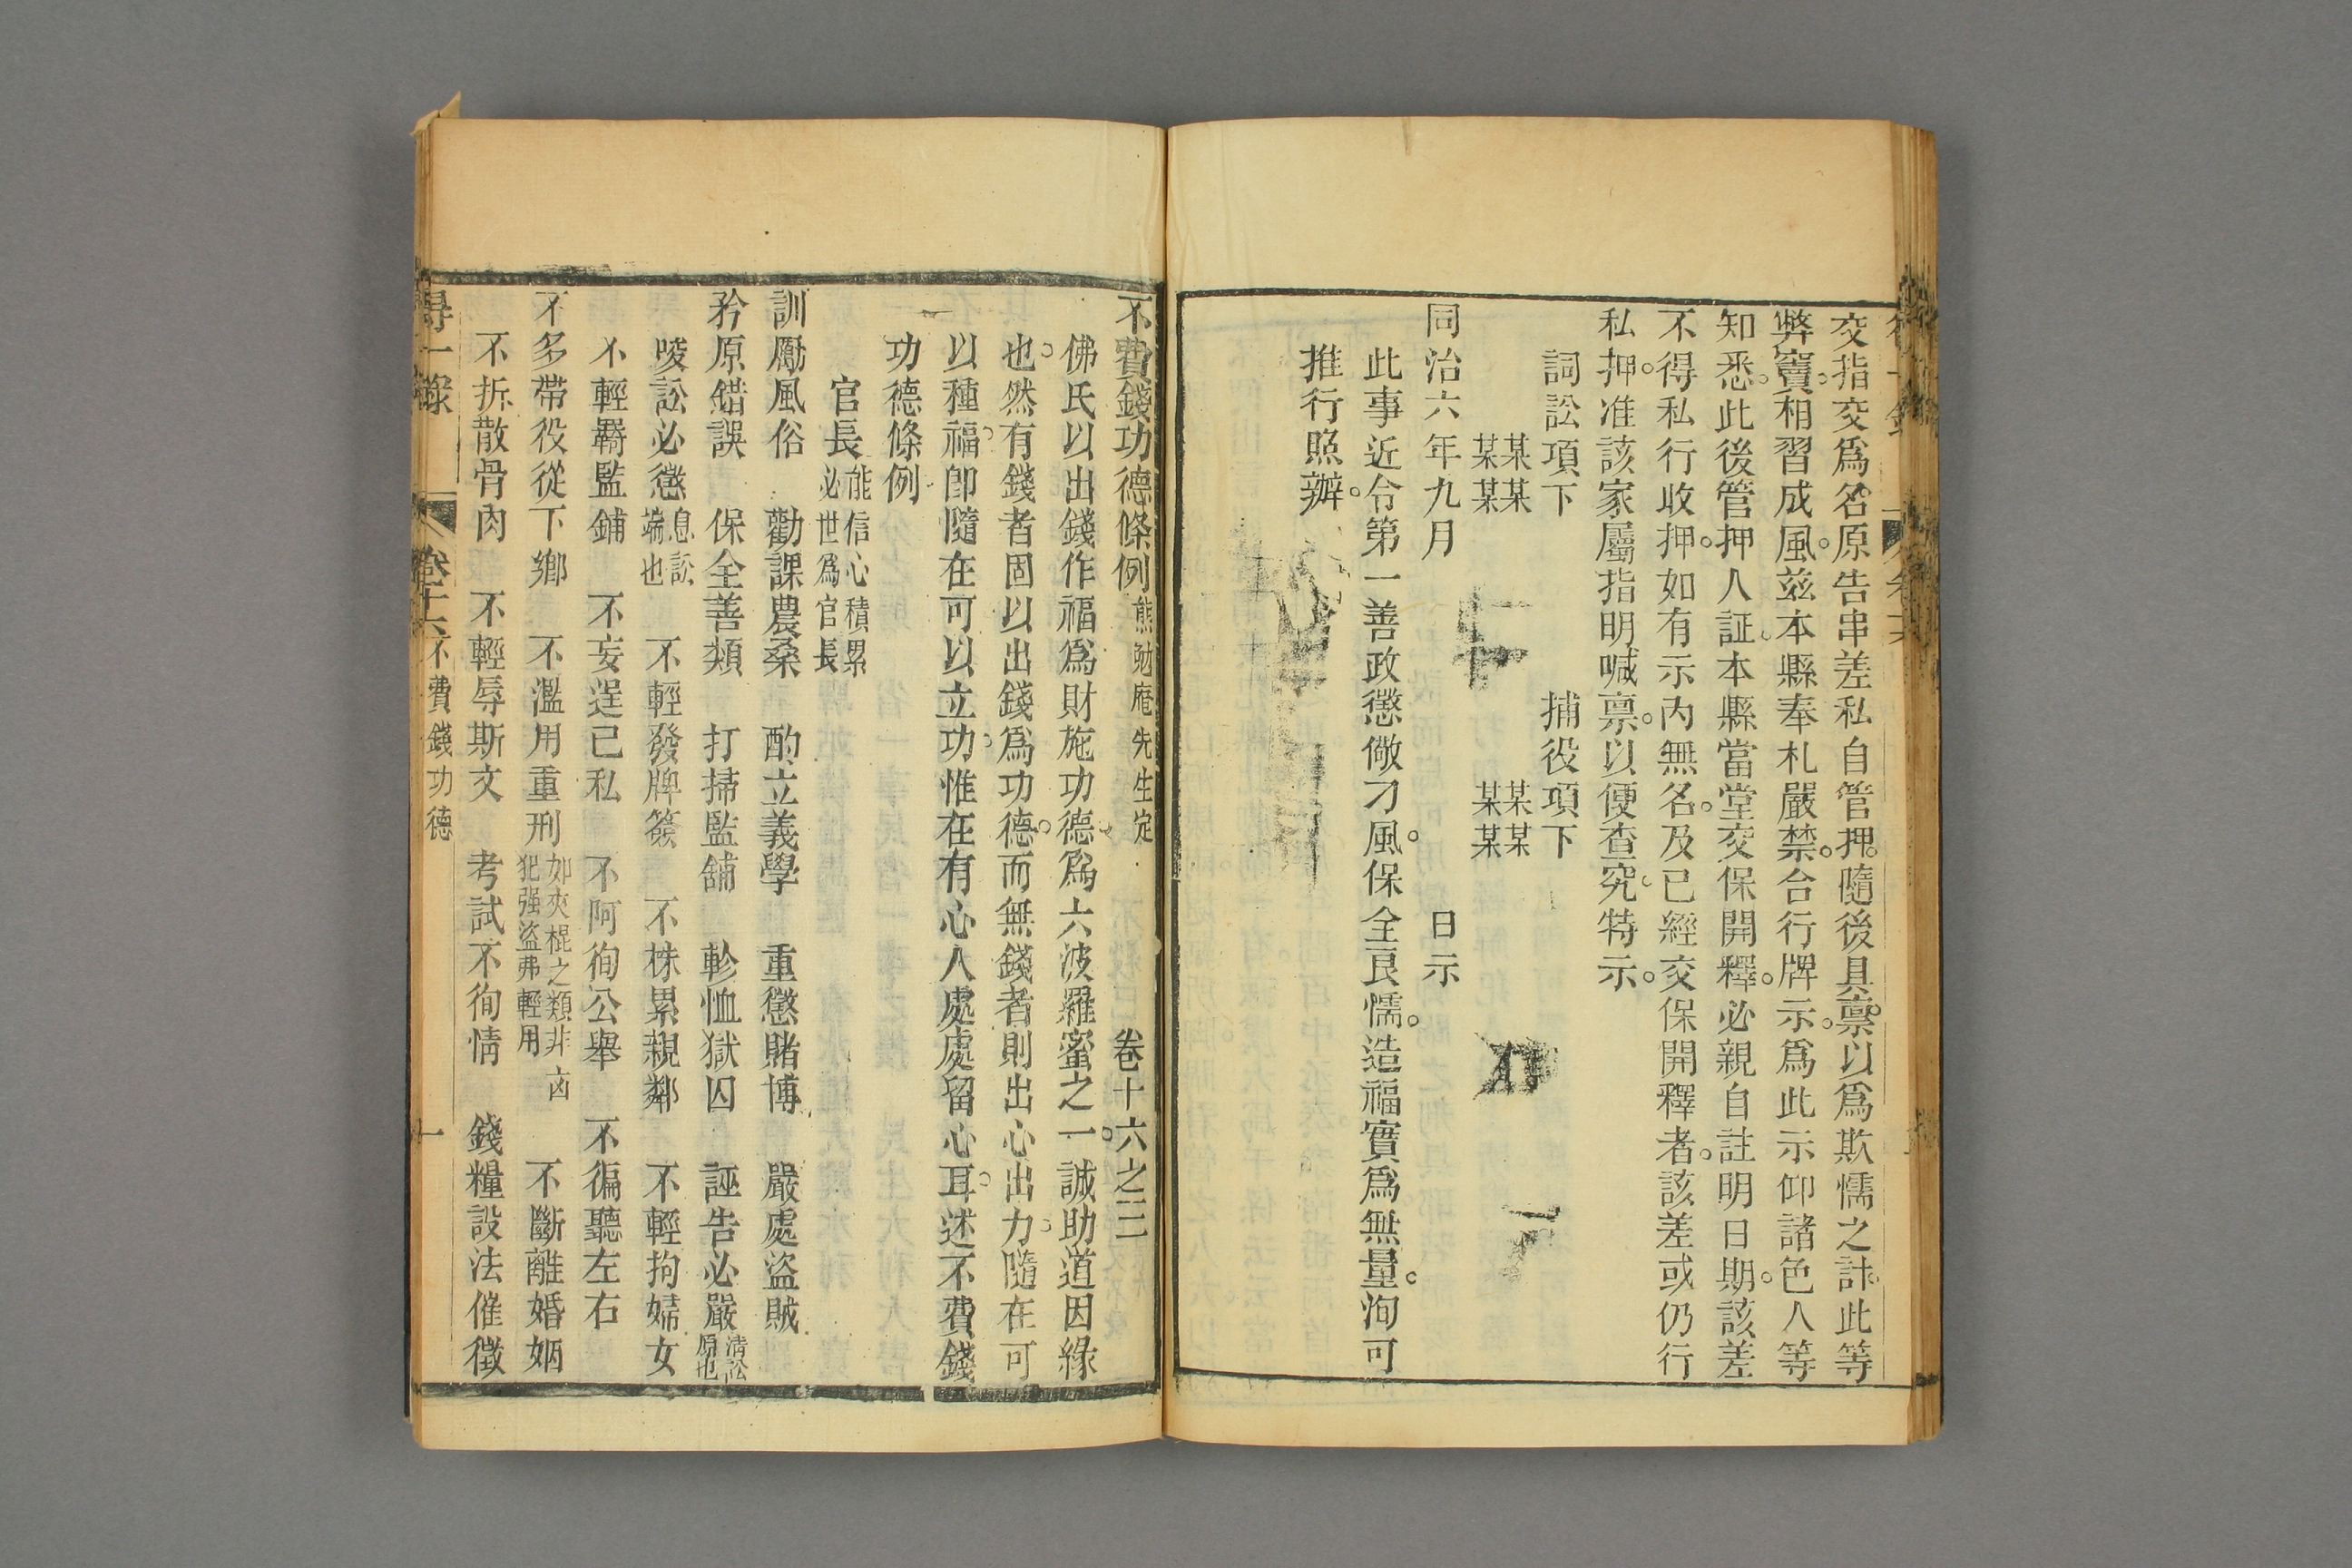 交指交爲名。原告串差私自管押。隨後具禀。以爲欺懦之計。此等
弊竇。相習成風。茲本縣奉札嚴禁。合行牌示。爲此示仰諸色人等
知悉。此後管押人証。本縣當堂交保開釋。必親自註明日期。該差
不得私行收押。如有示內無名。及已經交保開釋者。該差或仍行
私押。准該家屬指明喊禀。以便查究。特示。
詞訟項下 捕役項下
某某 某某
某某 某某
同治六年九月 日示
此事近令第一善政懲儆刁風。保全良懦。造福實爲無量。洵可
推行照辦。
不費錢功德條例 熊勉庵先生定 卷十六之三
佛氏以出錢作福爲財施功德。爲六波羅蜜之一。誠助道因緣
也。然有錢者固以出錢爲功德。而無錢者則出心出力。隨在可
以種福。卽隨在可以立功。惟在有心人處處留心耳。述不費錢
功德條例
官長 能信心積累
必世爲官長
訓勵風俗 勸課農桑 酌立義學 重懲賭博 嚴處盜賊
矜原錯誤 保全善類 打掃監舖 軫恤獄囚 誣告必嚴 清訟
原也
唆訟必懲 息訟
端也 不輕發牌簽 不株累親鄰 不輕拘婦女
不輕羇監鋪 不妄逞己私 不阿徇公舉 不徧聽左右
不多帶役從下鄉 不濫用重刑 如夾棍之類非卤
犯强盜弗輕用 不斷離婚姻
不拆散骨肉 不輕辱斯文 考試不徇情 錢糧設法催徵
得一錄 卷十六 不費錢功德 一